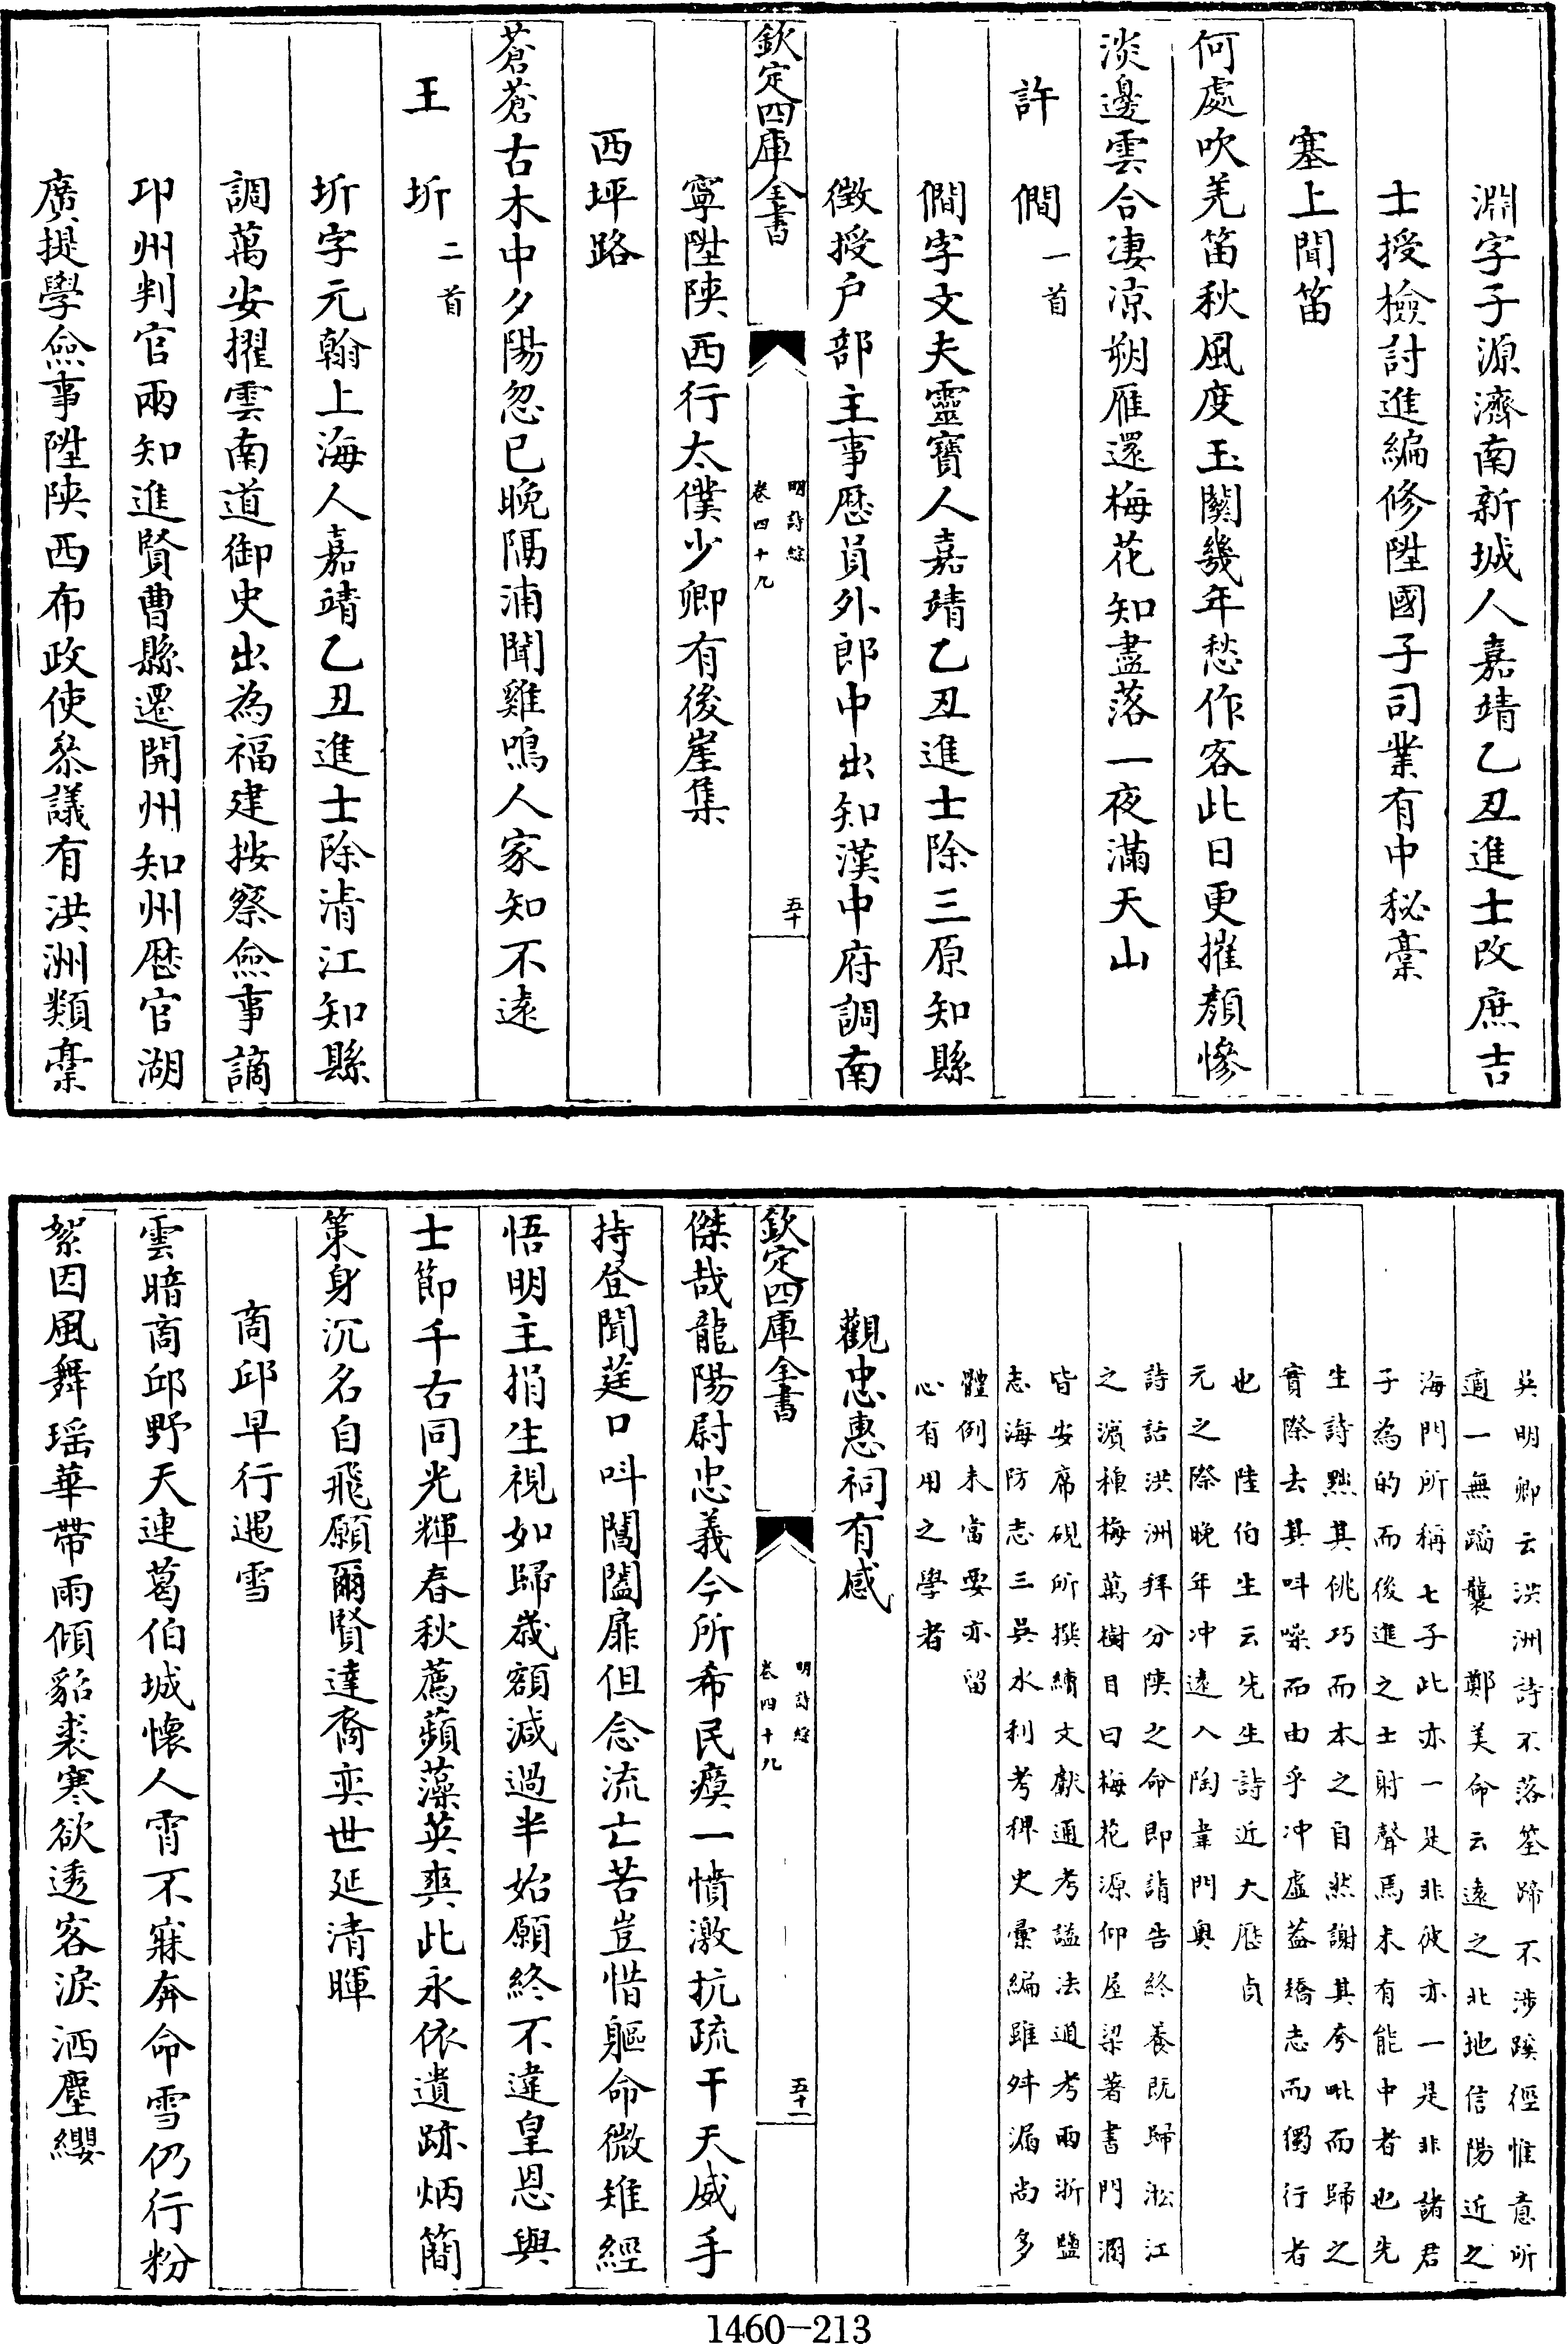 淵字子源濟南新城人嘉靖乙丑進士改庶吉
士授檢討進編修陞國子司業有中秘稾
塞上聞笛
何處吹羌笛秋風度玉關幾年愁作客此日更摧顏慘
淡邊雲合凄凉朔雁還梅花知盡落一夜滿天山
許㒎一首
㒎字文夫靈寶人嘉靖乙丑進士除三原知縣
徵授户部主事歷員外郎中出知漢中府調南
寧陞陜西行太僕少卿有後崖集
西坪路
蒼蒼古木中夕陽忽已晚隔浦聞雞鳴人家知不遠
王圻二首
圻字元翰上海人嘉靖乙丑進士除清江知縣
調萬安擢雲南道御史出為福建按察僉事謫
邛州判官兩知進賢曹縣遷開州知州歷官湖
廣提學僉事陞陜西布政使叅議有洪洲類稾
欽定四庫全書
明詩綜
卷四十九
五十
吳明卿云洪洲詩不落筌蹄不涉蹊徑惟意所
適一無蹈襲 鄭美命云遠之北地信陽近之
海門所稱七子此亦一是非彼亦一是非諸君
子為的而後進之士射聲焉未有能中者也先
生詩黜其佻巧而本之自然謝其夸毗而歸之
實際去其叫噪而由乎冲虛蓋矯志而獨行者
也 陸伯生云先生詩近大歷貞
元之際晚年冲遠入陶韋門奥
詩話洪洲拜分陜之命即請告終養既歸淞江
之濵種梅萬樹目曰梅花源仰屋梁著書門溷
皆安席硯所撰續文獻通考諡法通考兩浙鹽
志海防志三吳水利考稗史彙編雖舛漏尚多
體例未當要亦留
心有用之學者
觀忠惠祠有感
傑哉龍陽尉忠義今所希民瘼一憤激抗疏干天威手
持登聞莛口呌閶闔扉但念流亡苦豈惜軀命微雉經
悟明主捐生視如歸歲額減過半始願終不違皇恩與
士節千古同光輝春秋薦蘋藻英爽此永依遺跡炳簡
策身沉名自飛願爾賢達裔奕世延清暉
商邱早行遇雪
雲暗商邱野天連葛伯城懷人宵不寐奔命雪仍行粉
絮因風舞瑶華帶雨傾貂裘寒欲透客淚洒塵纓
欽定四庫全書
明詩綜
卷四十九
五十一
1460-213